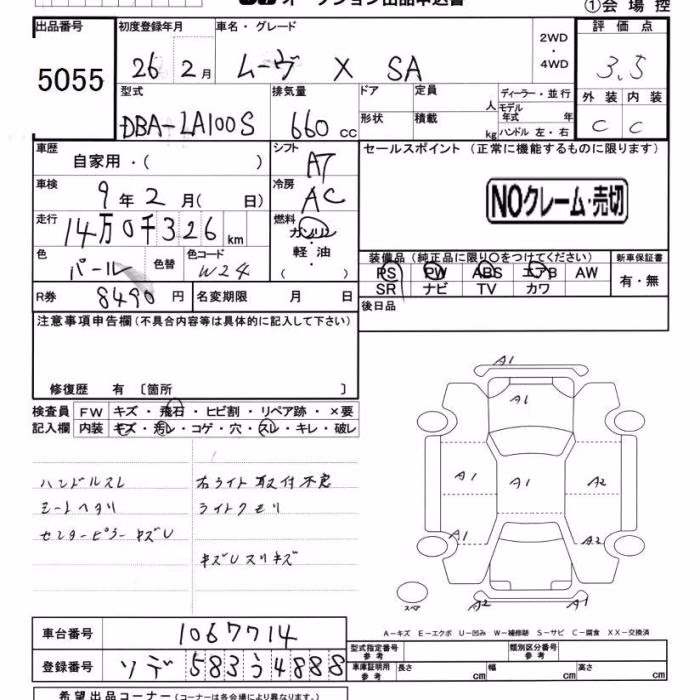 オークション出品申込書
①会場控
出品番号 初度登録年月 車名・グレード 2WD・4WD 評価点
5055 26 2月 ムーヴ X SA 3.5
型式 排気量 ドア 定員 人 ディーラー・並行 外装 内装
DBA-LA100S 660cc 形状 積載 kg モデル年式 年 C C
ハンドル 左・右
車歴 自家用・( ) シフト AT セールスポイント (正常に機能するものに限ります)
車検 9年2月( 日) 冷房 AC NOクレーム・売切
走行 14万0千326km 燃料 ガソリン
軽油・( )
色 パール 色替 色コード W24 装備品 (純正品に限り○をつけてください) 新車保証書
PS PW ABS エアB AW 有・無
SR ナビ TV カワ
R券 8490円 名変期限 月 日 後日品
注意事項申告欄 (不具合内容等は具体的に記入して下さい)
修復歴 有 〔箇所 〕
検査員 FW キズ・飛石・ヒビ割・リペア跡・×要
記入欄 内装 キズ・汚レ・コゲ・穴・スレ・キレ・破レ
ハンドルスレ 右ライト取付不良
シートヘタリ ライトクモリ
センターピラーキズU
キズUスリキズ
A1
A1
A1 A1 A2
A1 A2
スペア A2 A1
A-キズ E-エクボ U-凹み W-補修跡 S-サビ C-腐食 XX-交換済
車台番号 1067714
型式指定番号 参考 類別区分番号 参考
登録番号 ソデ 583う4888
車庫証明用 参考 長さ cm 幅 cm 高さ cm
希望出品コーナー (コーナーは各会場により異なります。)